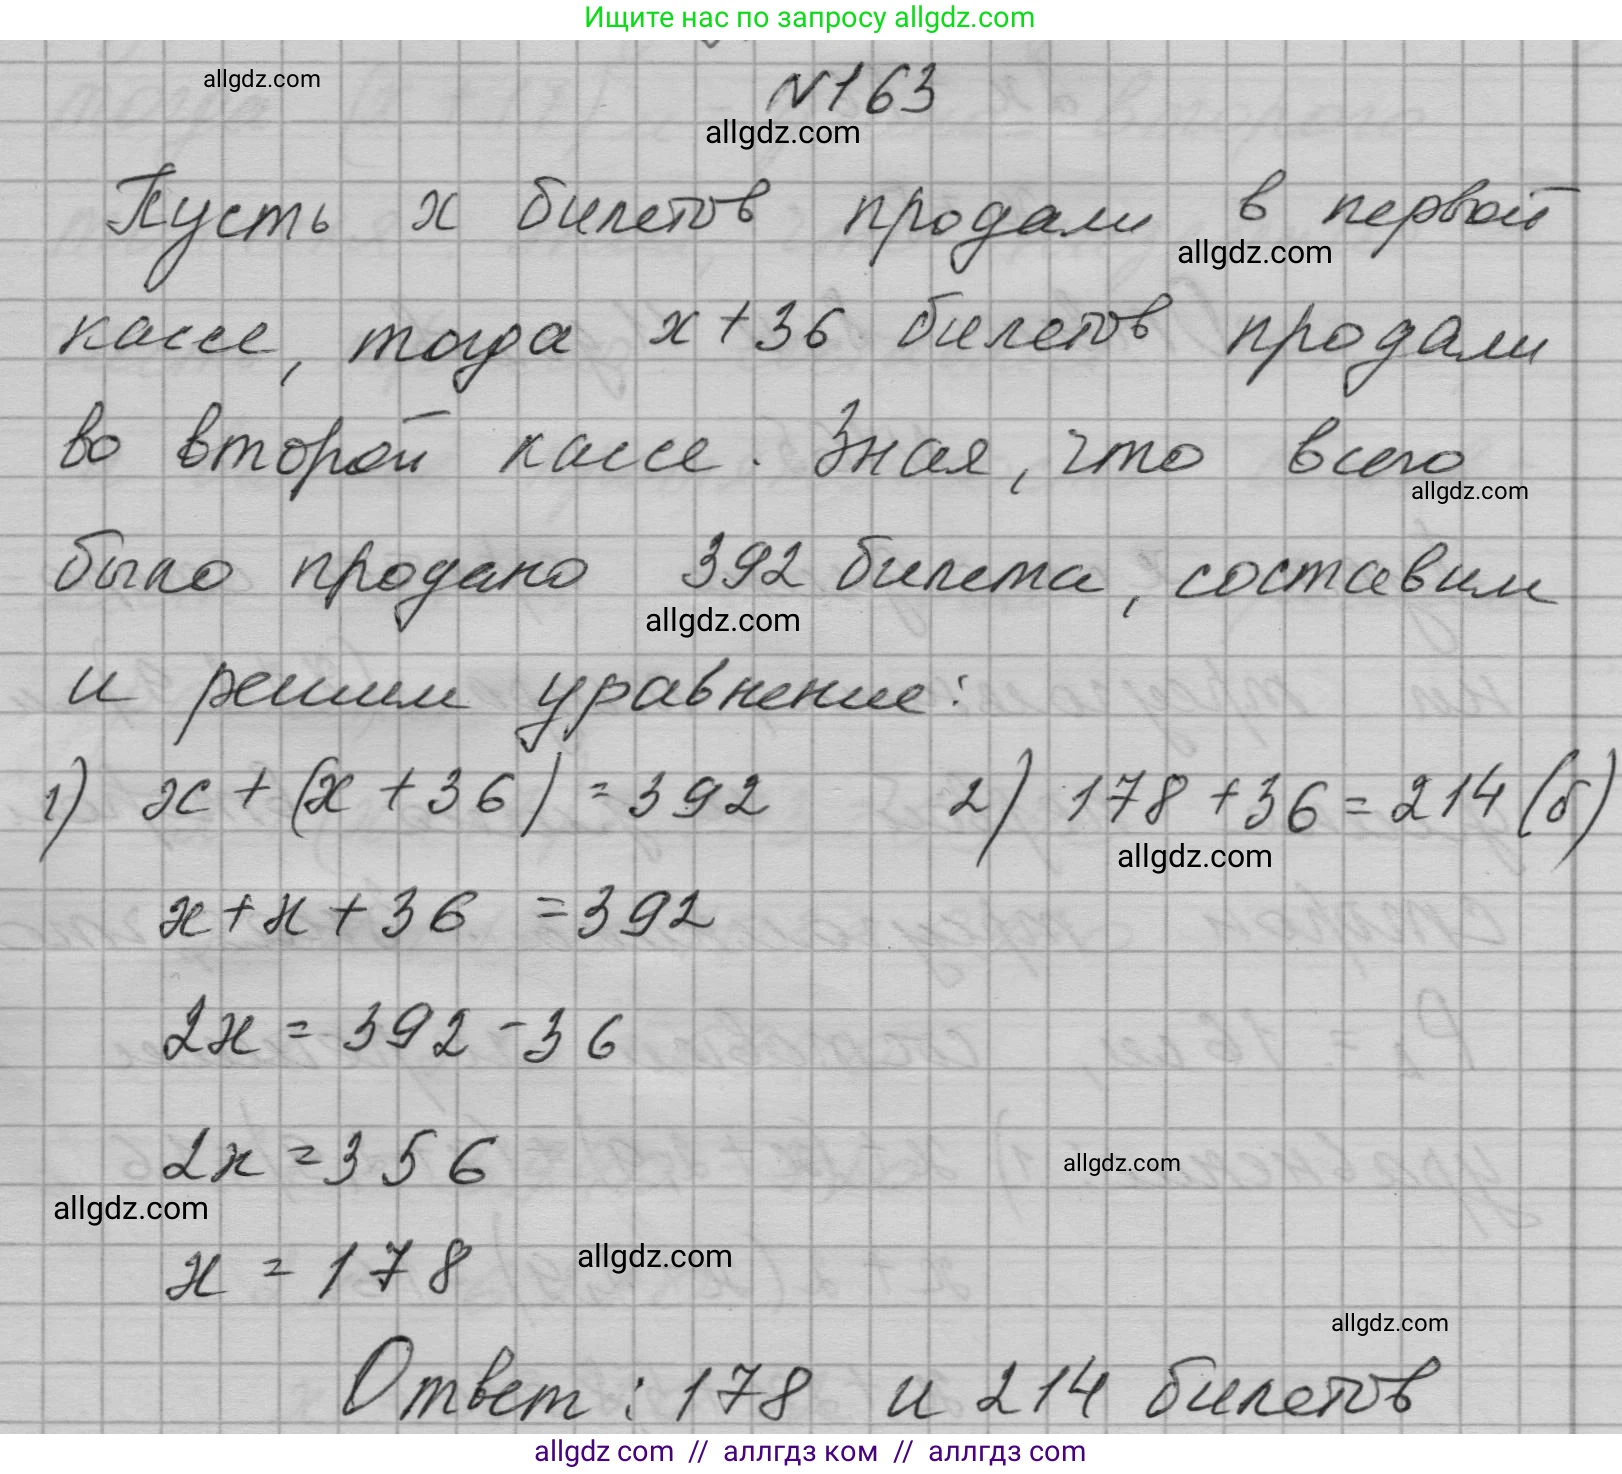 Ищите нас по запросу allgdz.com
allgdz.com
N163
allgdz.com
Пусть x билетов продали в первой
allgdz.com
кассе, тогда x+36 билетов продали
во второй кассе. Зная, что всего
allgdz.com
было продано 392 билета, составим
allgdz.com
и решим уравнение:
1) x + (x + 36) = 392 2) 178 + 36 = 214 (б)
allgdz.com
x + x + 36 = 392
2x = 392 - 36
2x = 356
allgdz.com
allgdz.com
x = 178
allgdz.com
allgdz.com
Ответ: 178 и 214 билетов
allgdz com // аллгдз ком // аллгdz com